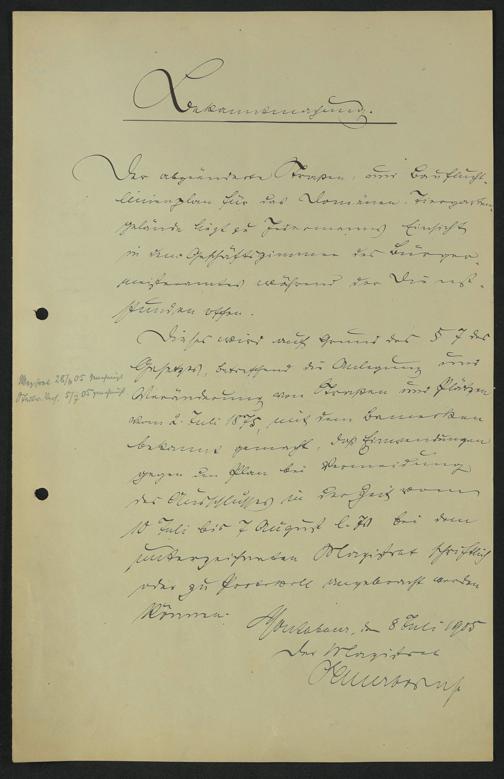 Bekanntmachung.
Der abgeänderte Straßen- und Bauflucht-
linienplan für das Domänen-Tiergarten-
gelände liegt zu Jedermanns Einsicht
in dem Geschäftszimmer des Bürger-
meisteramtes während der Dienst-
stunden offen.
Dieses wird auf Grund des § 7 des
Gesetzes, betreffend die Anlegung und
Veränderung von Straßen und Plätzen
vom 2. Juli 1875, mit dem Bemerken
bekannt gemacht, daß Einwendungen
gegen den Plan bei Vermeidung
des Ausschlusses in der Zeit vom
10 Juli bis 7 August l. Js bei dem
unterzeichneten Magistrat schriftlich
oder zu Protokoll angebracht werden
können.
Montabaur, den 8 Juli 1905
Der Magistrat